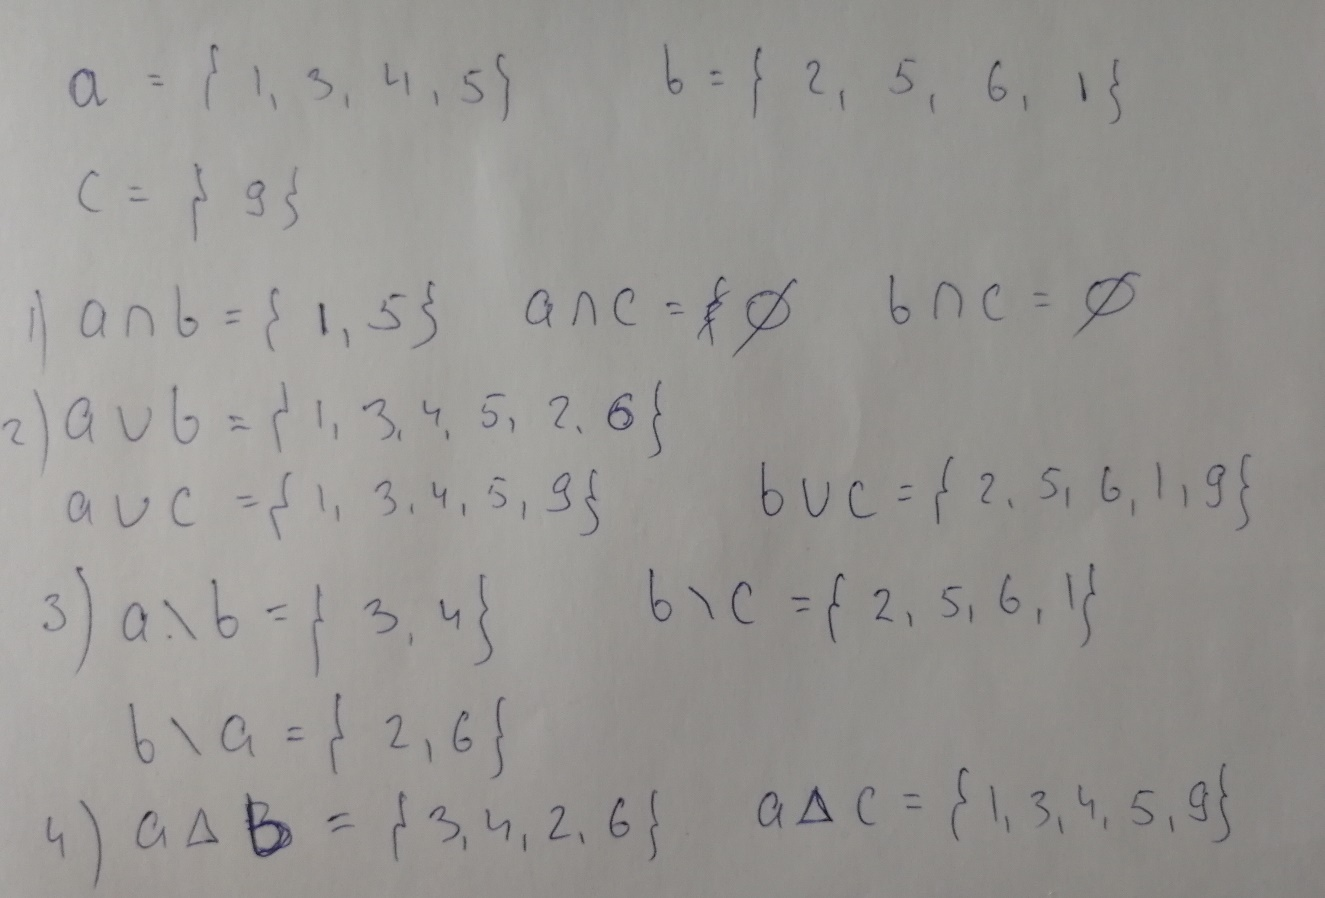 a = {1, 3, 4, 5} b = { 2, 5, 6, 1}
c = { 9}
1) a∩b = { 1, 5} a∩c = ∅ b∩c = ∅
2) a∪b = { 1, 3, 4, 5, 2, 6}
a∪c = { 1, 3, 4, 5, 9} b∪c = { 2, 5, 6, 1, 9}
3) a\b = { 3, 4} b\c = { 2, 5, 6, 1}
b\a = { 2, 6}
4) a Δ B = { 3, 4, 2, 6} a Δ c = { 1, 3, 4, 5, 9}